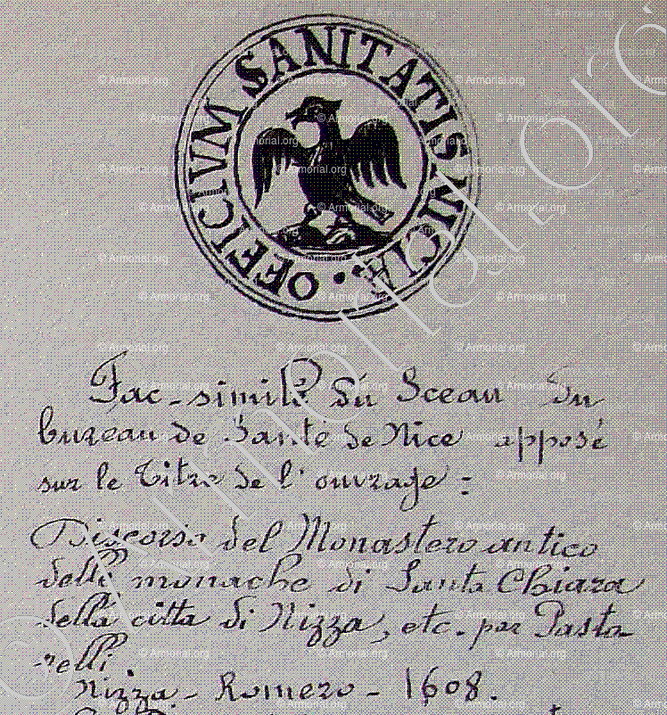 OFFICIVM SANITATIS NICIÆ.
Fac-similé du Sceau du
bureau de Santé de Nice apposé
sur le Titre de l'ouvrage :
Discorso del Monastero antico
delle monache di Santa Chiara
della citta di Nizza, etc. par Pasto-
relli.
Nizza - Romero - 1608.
© Armorial.org